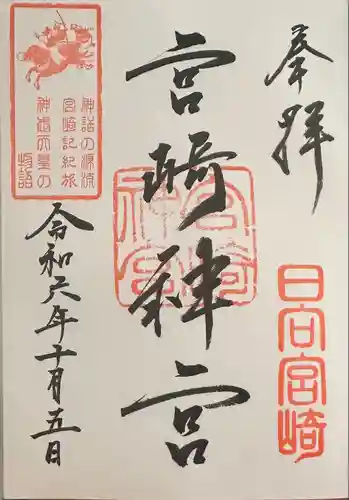 奉拝
日向宮崎
宮﨑神宮
宮崎神宮
神話の源流
宮崎記紀旅
神武天皇の
物語
令和六年十月五日